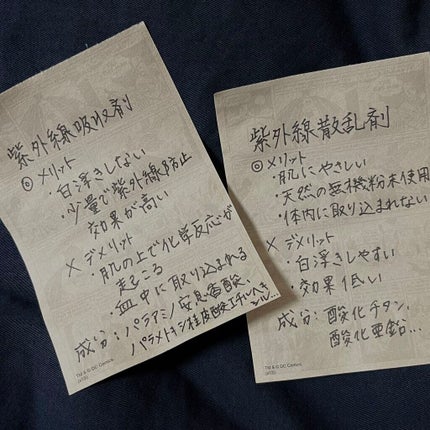 紫外線吸収剤
◎メリット
・白浮きしない
・少量で紫外線防止
効果が高い
× デメリット
・肌の上で化学反応が
起こる
・血中に取り込まれる
成分:パラアミノ安息香酸、
パラメトキシ桂皮酸エチルヘキ
シル…
TM & © DC Comics.
紫外線散乱剤
◎メリット
・肌にやさしい
・天然の無機粉末使用
・体内に取り込まれない
× デメリット
・白浮きしやすい
・効果低い
成分:酸化チタン、
酸化亜鉛…
TM & © DC Comics.